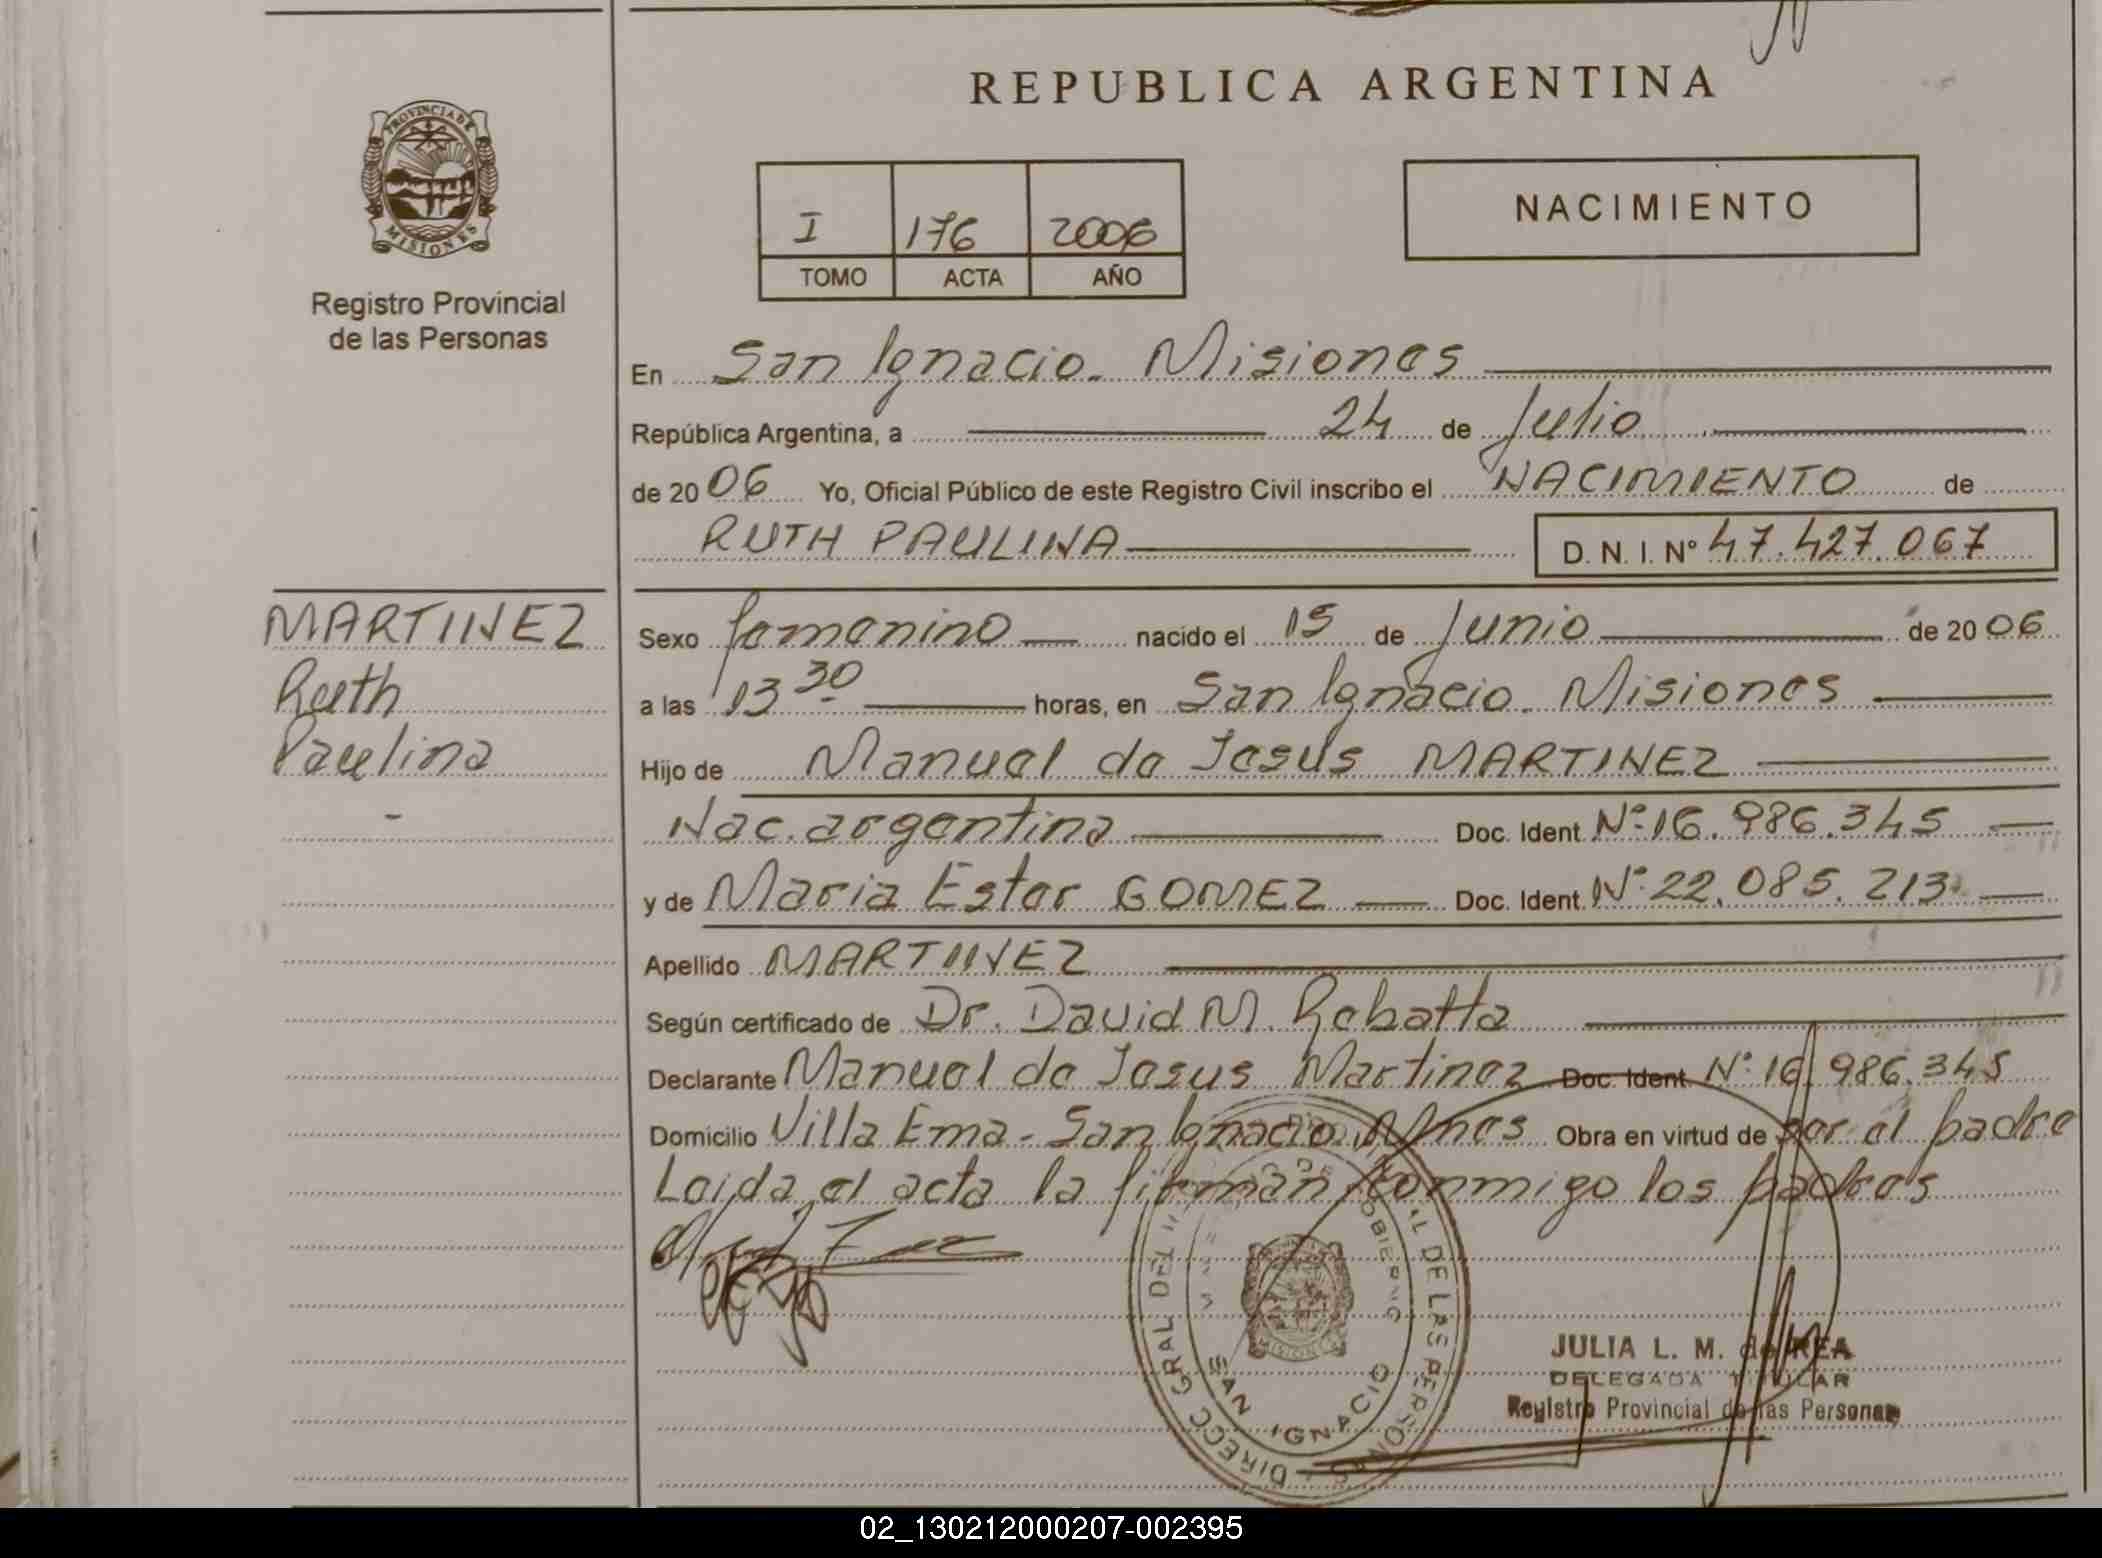 REPUBLICA ARGENTINA
PROVINCIA DE
MISIONES
Registro Provincial
de las Personas
I 176 2006
TOMO ACTA AÑO
NACIMIENTO
En San Ignacio. Misiones
República Argentina, a 24 de Julio
de 2006 Yo, Oficial Público de este Registro Civil inscribo el NACIMIENTO de
RUTH PAULINA D. N. I. Nº 47.427.067
MARTINEZ
Ruth
Paulina
Sexo femenino nacido el 15 de Junio de 2006
a las 13 30 horas, en San Ignacio. Misiones
Hijo de Manuel de Jesús MARTINEZ
Nac. argentina Doc. Ident. Nº 16.986.345
y de Maria Ester GOMEZ Doc. Ident. Nº 22.085.213
Apellido MARTINEZ
Según certificado de Dr. David M. Rebatta
Declarante Manuel de Jesus Martinez Doc. Ident. Nº 16.986.345
Domicilio Villa Ema - San Ignacio. Mnes Obra en virtud de ser el padre
Leida el acta la firman conmigo los padres
DIRECC GRAL DEL DE LAS PERSONAS
SAN IGNACIO
JULIA L. M. de REA
DELEGADA TITULAR
Registro Provincial de las Personas
02_130212000207-002395